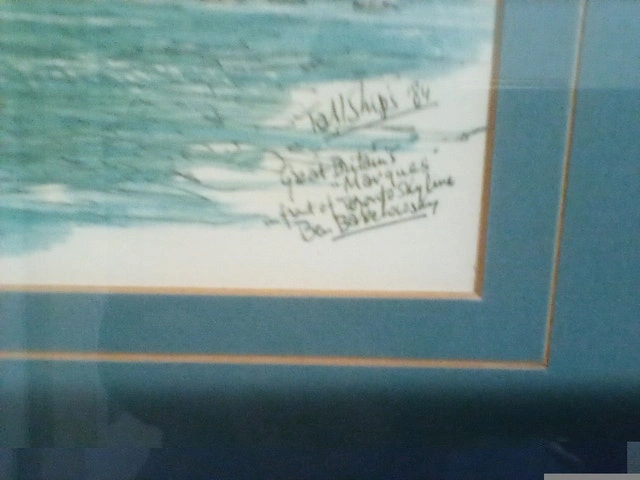 "Tallships 84
Great Britain's
"Marques"
in front of Toronto Skyline
Ben